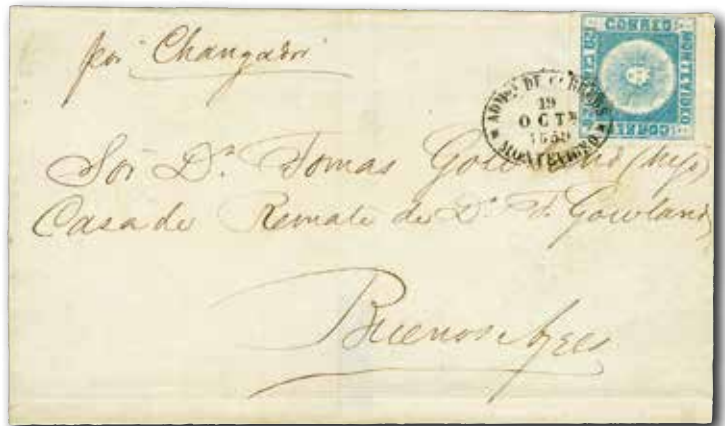 por "Changador"
CORREO
MONTEVIDEO
CORREO
ADMON DE CORREOS
19
OCTE
MONTEVIDEO
Sor Dn. Tomas Gowland (hijo)
Casa de Remate de Dn. T. Gowland
Buenos Ayres